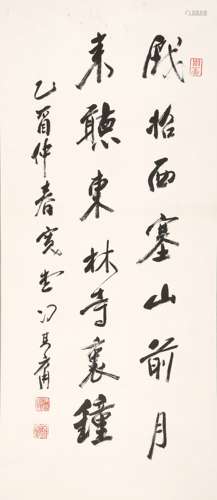 我拾西塞山前月
来聽東林寺裏鐘
乙酉仲春寬堂馮其庸